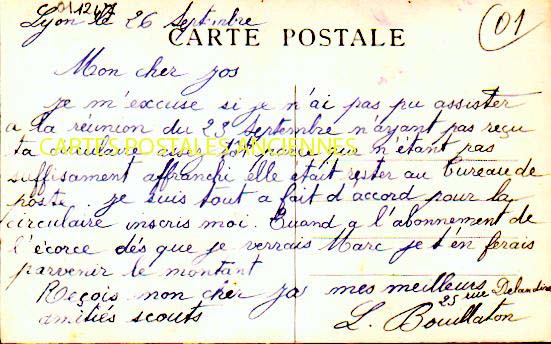 01 1247
Lyon le 26 Septembre
01
CARTE POSTALE
Mon cher Jos
Je m'excuse si je n'ai pas pu assister
a la réunion du 23 Septembre n'ayant pas reçu
ta circulaire assez tôt parce que n'étant pas
CARTES POSTALES ANCIENNES
suffisament affranchi elle était rester au Bureau de
poste. je suis tout a fait d'accord pour la
circulaire inscris moi. Quand a l'abonnement de
l'écorce dés que je verrais Marc je t'en ferais
parvenir le montant
Reçois mon cher Jos mes meilleurs
amitiés scouts
25 rue Delandine
L. Bouillaton